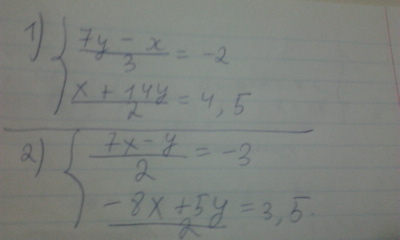 1) { (7y - x)/3 = -2
(x + 14y)/2 = 4,5
2) { (7x - y)/2 = -3
(-8x + 5y)/2 = 3,5.